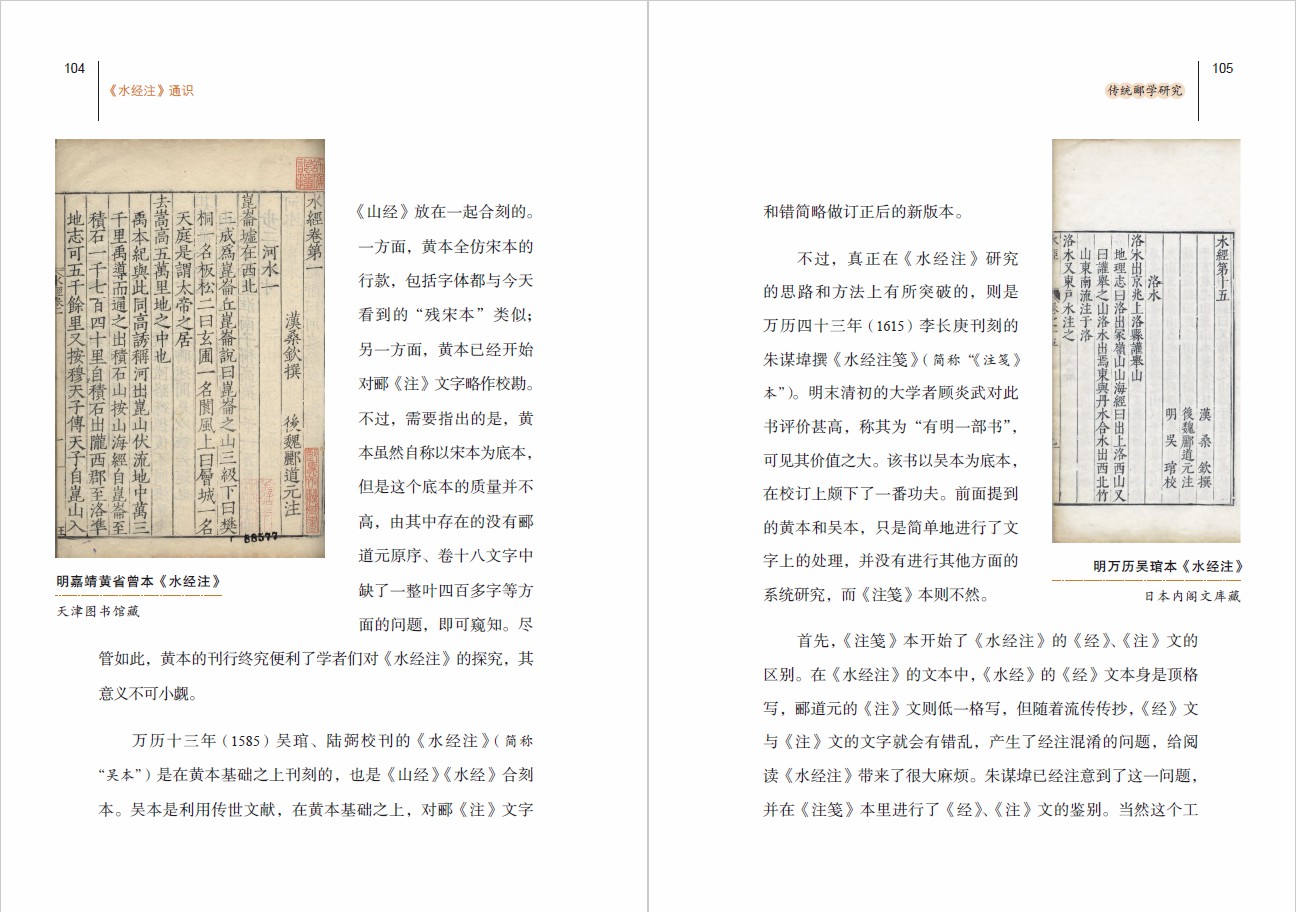 104
《水经注》通识
水經卷第一
漢桑欽撰 後魏酈道元注
河水一
崑崙墟在西北
三成爲崑崙丘崑崙說曰崑崙之山三級下曰樊
桐一名板松二曰玄圃一名閬風上曰層城一名
天庭是謂太帝之居
去嵩高五萬里地之中也
禹本紀與此同高誘稱河出崑山伏流地中萬三
千里禹導而通之出積石山按山海經自崑崙至
積石一千七百四十里自積石出隴西郡至洛準
地志可五千餘里又按穆天子傳天子自崑山入
88577
明嘉靖黄省曾本《水经注》
天津图书馆藏
《山经》放在一起合刻的。
一方面，黄本全仿宋本的
行款，包括字体都与今天
看到的“残宋本”类似；
另一方面，黄本已经开始
对郦《注》文字略作校勘。
不过，需要指出的是，黄
本虽然自称以宋本为底本，
但是这个底本的质量并不
高，由其中存在的没有郦
道元原序、卷十八文字中
缺了一整叶四百多字等方
面的问题，即可窥知。尽
管如此，黄本的刊行终究便利了学者们对《水经注》的探究，其
意义不可小觑。
万历十三年（1585）吴琯、陆弼校刊的《水经注》（简称
“吴本”）是在黄本基础之上刊刻的，也是《山经》《水经》合刻
本。吴本是利用传世文献，在黄本基础之上，对郦《注》文字
105
传统郦学研究
和错简略做订正后的新版本。
不过，真正在《水经注》研究
的思路和方法上有所突破的，则是
万历四十三年（1615）李长庚刊刻的
朱谋㙔撰《水经注笺》（简称“《注笺》
本”）。明末清初的大学者顾炎武对此
书评价甚高，称其为“有明一部书”，
可见其价值之大。该书以吴本为底本，
在校订上颇下了一番功夫。前面提到
的黄本和吴本，只是简单地进行了文
字上的处理，并没有进行其他方面的
系统研究，而《注笺》本则不然。
水經第十五
漢 桑 欽 撰
後魏酈道元注
明 吳 琯 校
洛水
洛水出京兆上洛縣讙舉山
地理志曰洛出冢嶺山山海經曰出上洛西山又
曰讙舉之山洛水出焉東與丹水合水出西北竹
山東南流注于洛
洛水又東尸水注之
明万历吴琯本《水经注》
日本内阁文库藏
首先，《注笺》本开始了《水经注》的《经》、《注》文的
区别。在《水经注》的文本中，《水经》的《经》文本身是顶格
写，郦道元的《注》文则低一格写，但随着流传传抄，《经》文
与《注》文的文字就会有错乱，产生了经注混淆的问题，给阅
读《水经注》带来了很大麻烦。朱谋㙔已经注意到了这一问题，
并在《注笺》本里进行了《经》、《注》文的鉴别。当然这个工